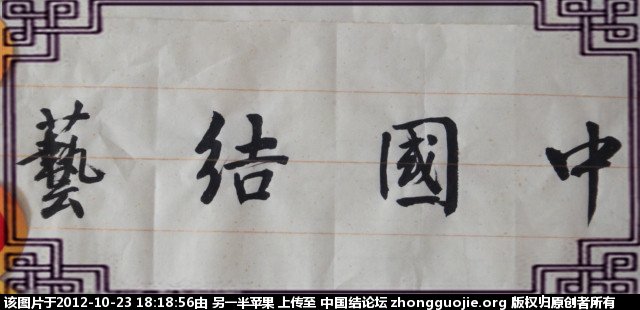 中國结藝
该图片于2012-10-23 18:18:56由 另一半苹果 上传至 中国结论坛 zhongguojie.org 版权归原创者所有